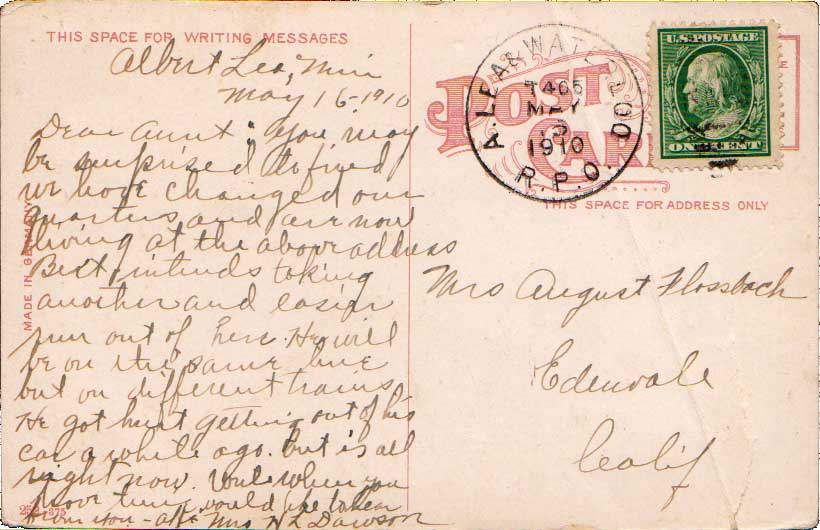 THIS SPACE FOR WRITING MESSAGES
Albert Lea, Min
May 16-1910
Dear Aunt: You may
be surprised to find
we have changed our
quarters and are now
living at the above address
Bert intends taking
another and easier
run out of here. He will
be on the same line
but on different trains
He got hurt getting out of his
car a while ago. but is all
right now. Write when you
have time, would like to hear
from you - Mrs. N L Dawson
MADE IN GERMANY
252 375
POST CARD
A. LEA & WATE
T 405
MAY
1910
R.P.O.
U.S. POSTAGE
ONE CENT
THIS SPACE FOR ADDRESS ONLY
Mrs August Flossbach
Edenvale
Calif